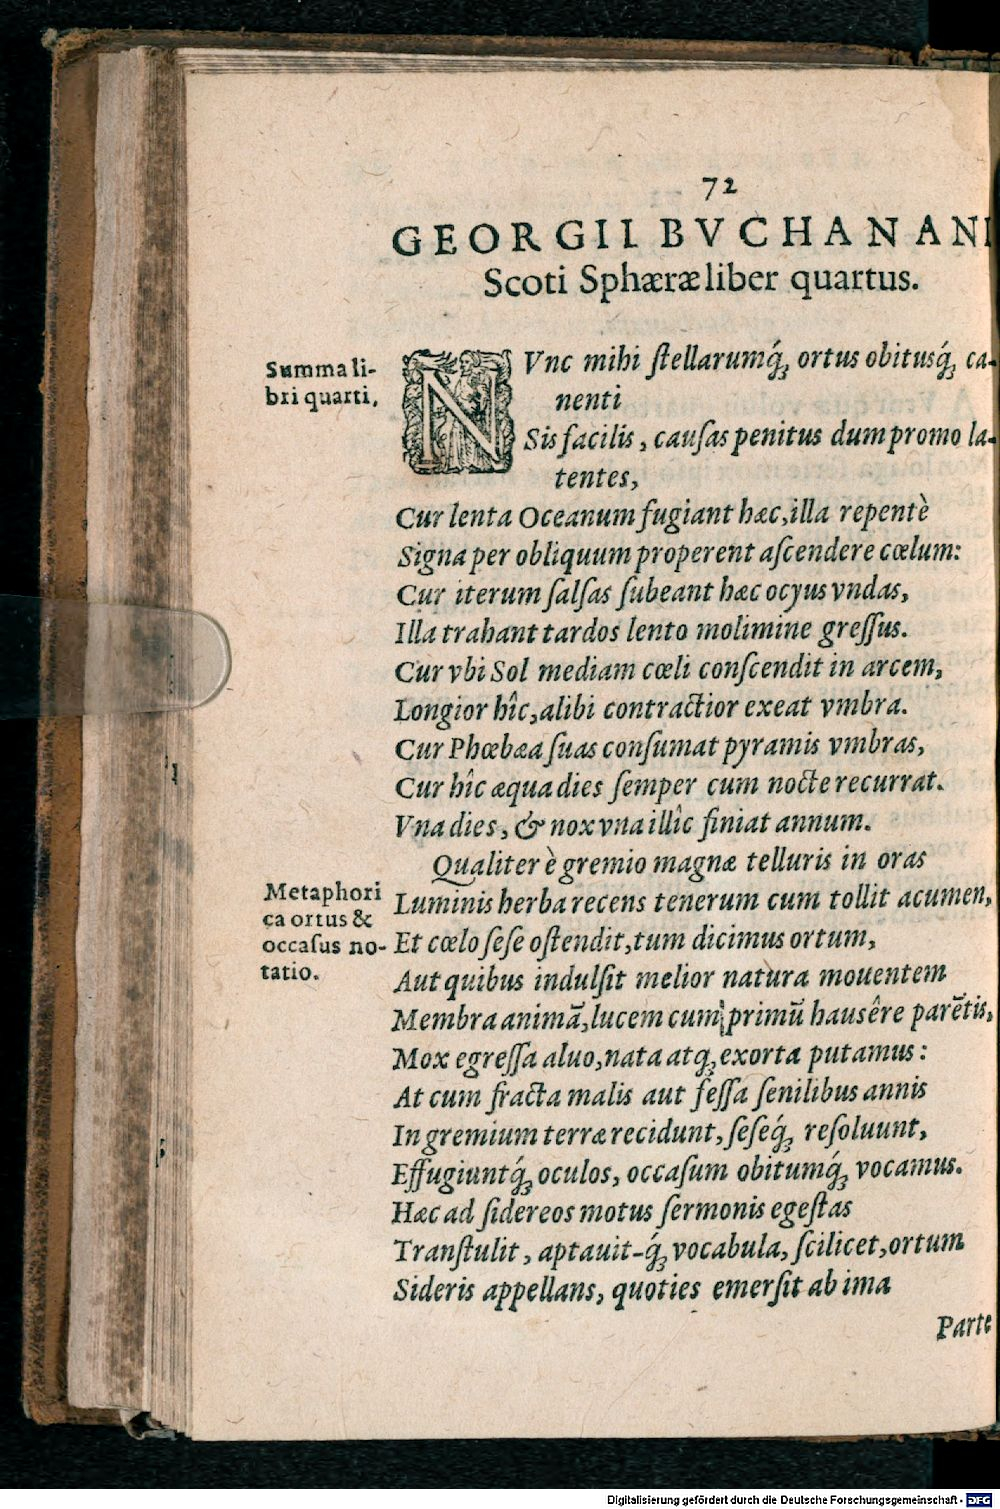 72
GEORGII BVCHANANI
Scoti Sphæræ liber quartus.
Summa li-
bri quarti,
NVnc mihi ſtellarumq́ꝫ ortus obitusq́ꝫ ca-
nenti
Sis facilis, cauſas penitus dum promo la-
tentes,
Cur lenta Oceanum fugiant hæc, illa repentè
Signa per obliquum properent aſcendere cœlum:
Cur iterum ſalſas ſubeant hæc ocyus vndas,
Illa trahant tardos lento molimine greſſus.
Cur vbi Sol mediam cœli conſcendit in arcem,
Longior hîc, alibi contractior exeat vmbra.
Cur Phœbæa ſuas conſumat pyramis vmbras,
Cur hîc æqua dies ſemper cum nocte recurrat.
Vna dies, & nox vna illîc finiat annum.
Qualiter è gremio magnæ telluris in oras
Metaphori
ca ortus &
occaſus no-
tatio.
Luminis herba recens tenerum cum tollit acumen,
Et cœlo ſeſe oſtendit, tum dicimus ortum,
Aut quibus indulſit melior natura mouentem
Membra animā, lucem cum primū hausêre parētis,
Mox egreſſa aluo, nata atqꝫ exorta putamus:
At cum fracta malis aut feſſa ſenilibus annis
In gremium terræ recidunt, ſeſeq́ꝫ reſoluunt,
Effugiuntq́ꝫ oculos, occaſum obitumq́ꝫ vocamus.
Hæc ad ſidereos motus ſermonis egeſtas
Tranſtulit, aptauit-q́ꝫ vocabula, ſcilicet, ortum
Sideris appellans, quoties emerſit ab ima
Parte
Digitalisierung gefördert durch die Deutsche Forschungsgemeinschaft - DFG